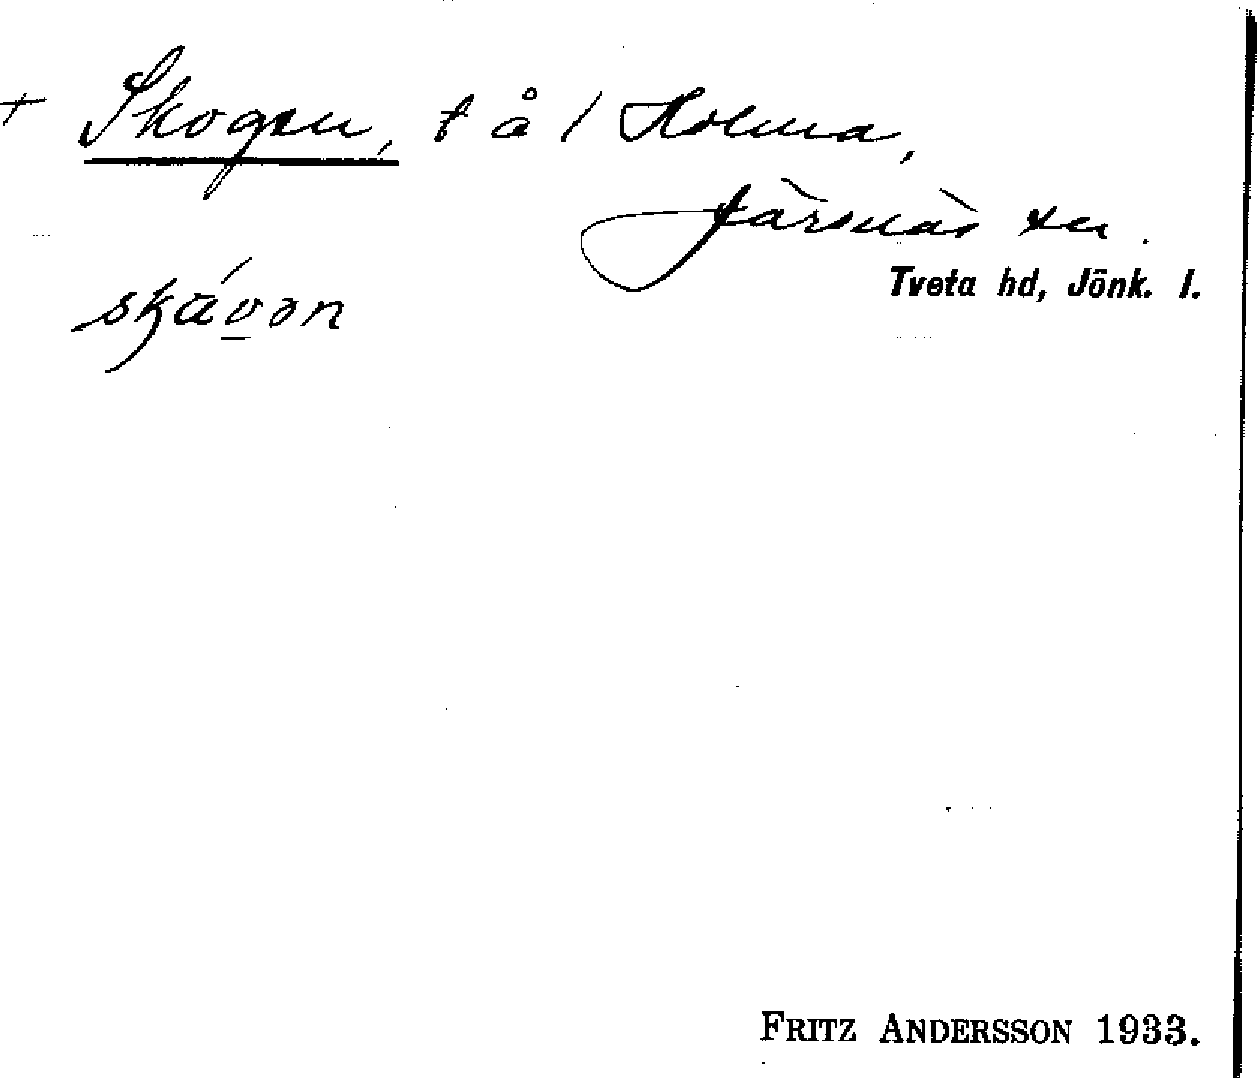 + Skogen, t å / Holma,
Järsnäs sn.
Tveta hd, Jönk. l.
skávən
FRITZ ANDERSSON 1933.